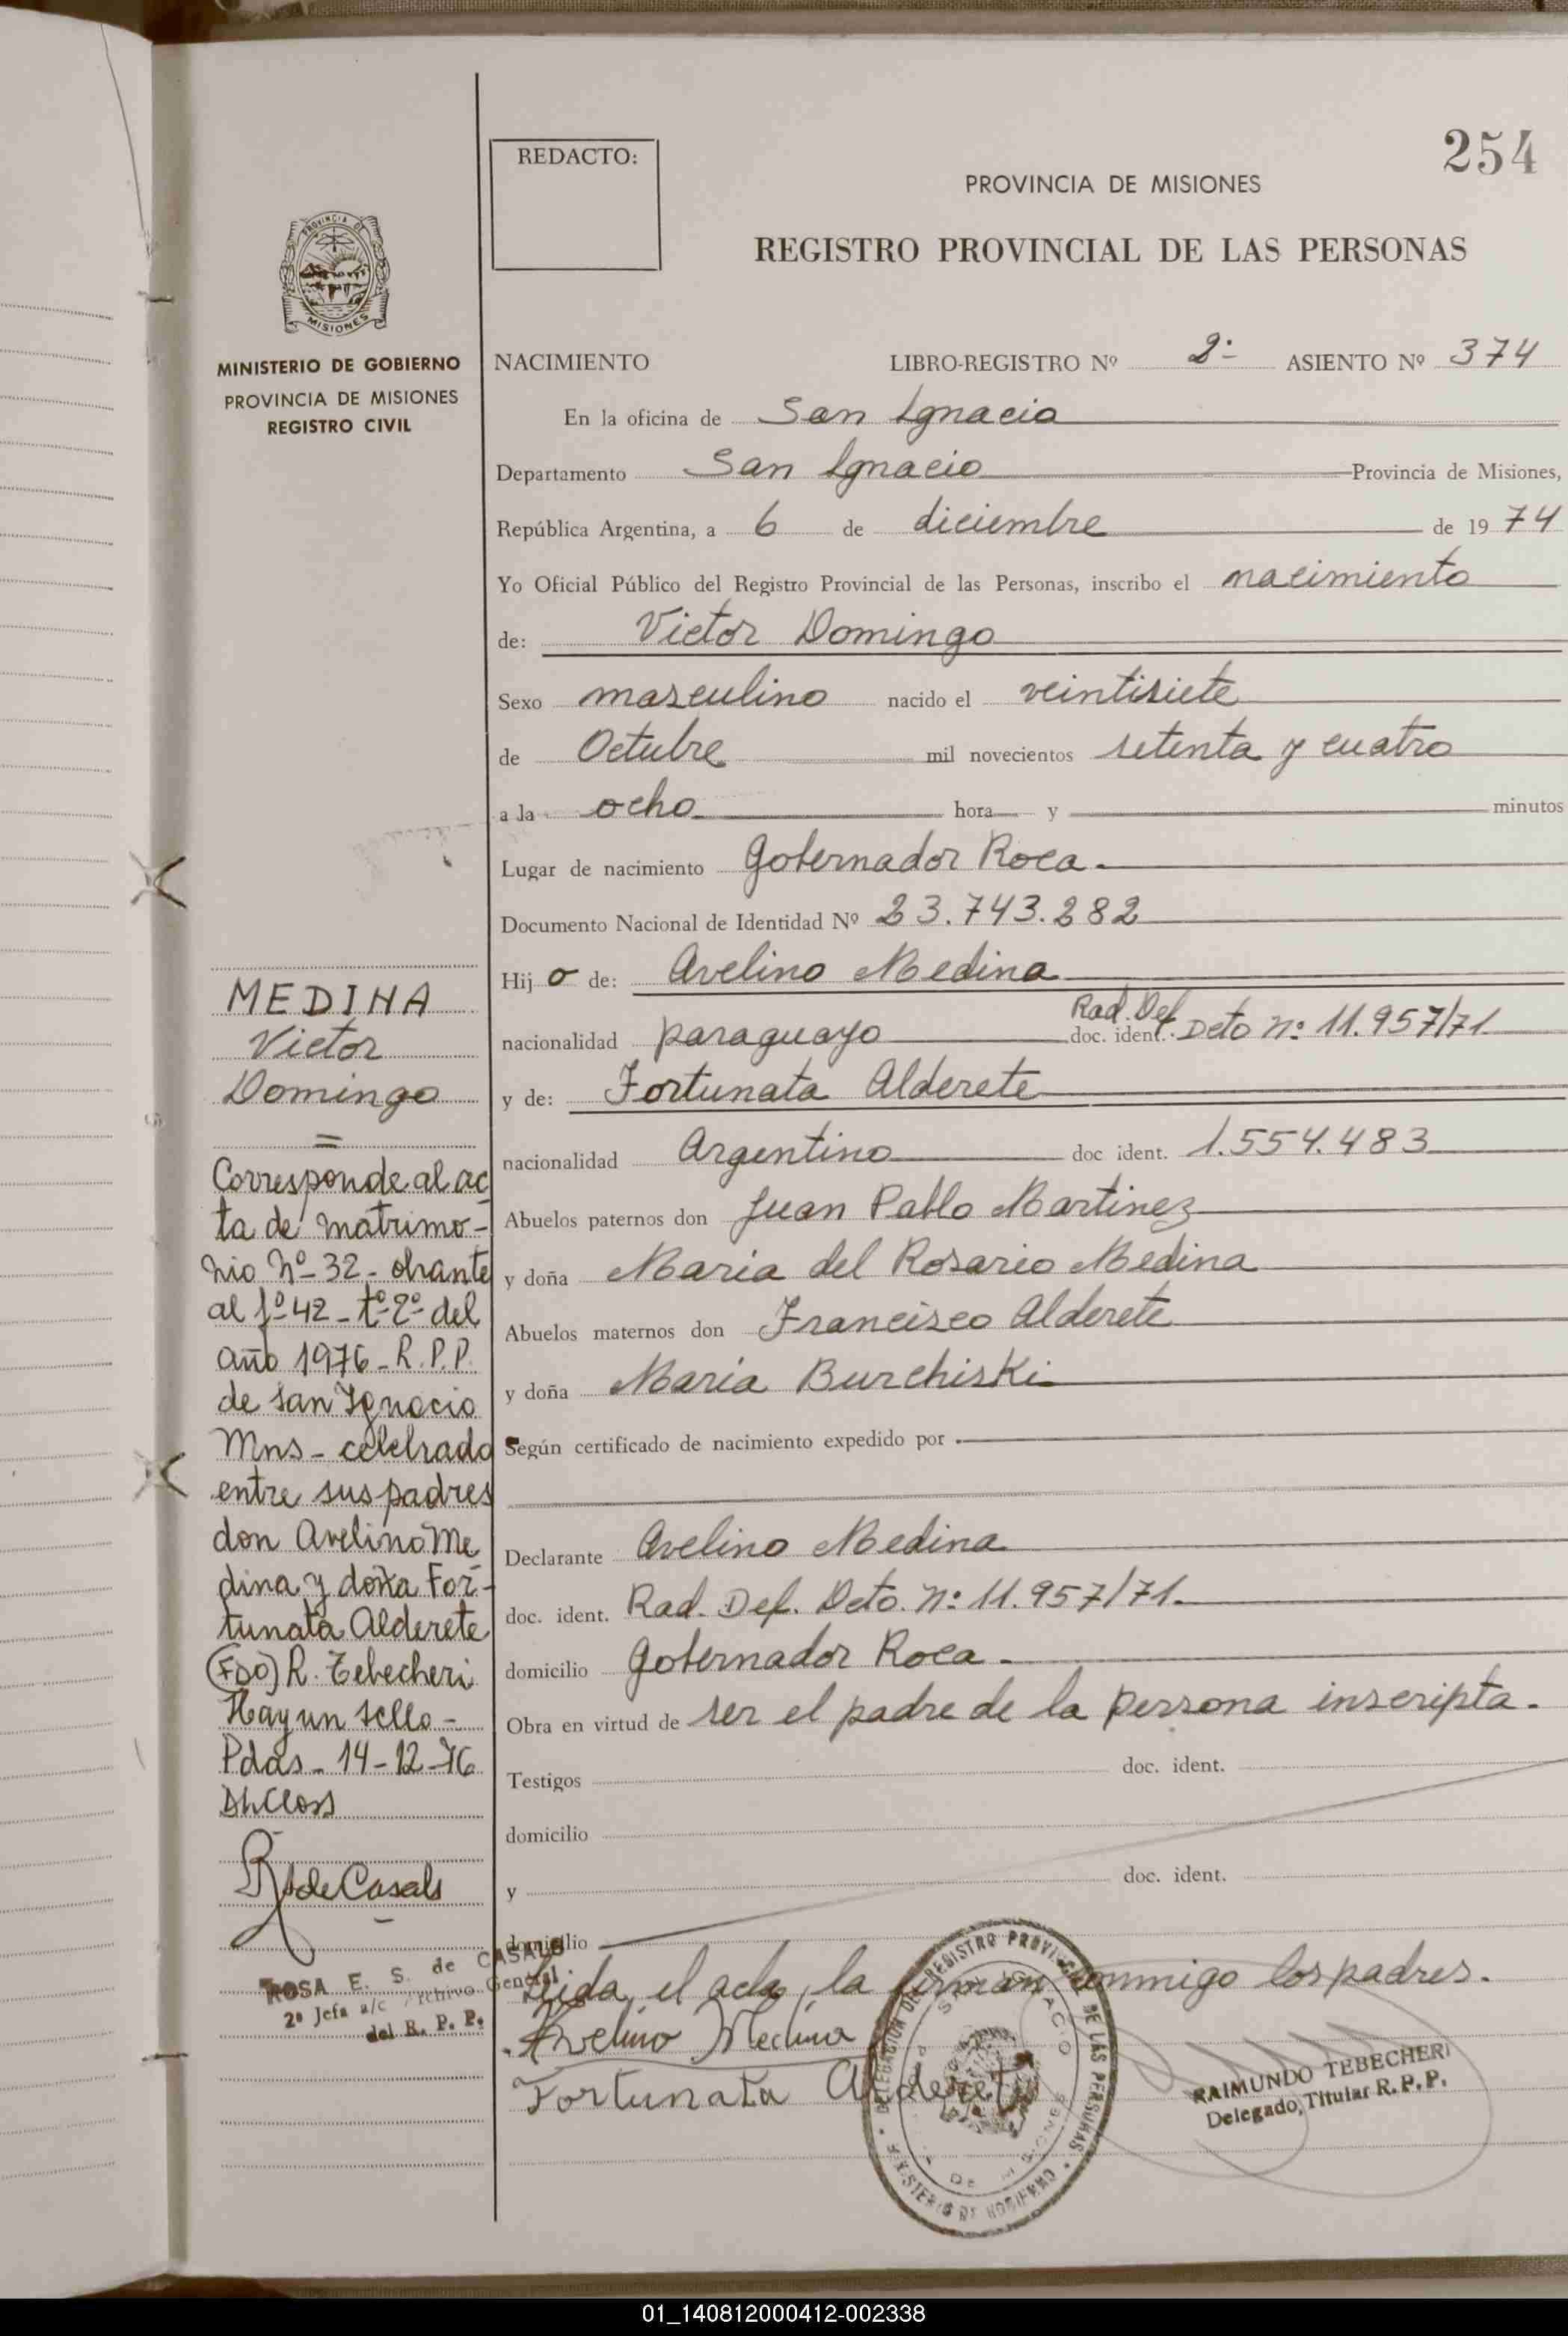 254
REDACTO:
PROVINCIA DE MISIONES
REGISTRO PROVINCIAL DE LAS PERSONAS
PROVINCIA DE
MISIONES
MINISTERIO DE GOBIERNO
PROVINCIA DE MISIONES
REGISTRO CIVIL
NACIMIENTO LIBRO-REGISTRO Nº 2º- ASIENTO Nº 374
En la oficina de San Ignacio
Departamento San Ignacio Provincia de Misiones,
República Argentina, a 6 de diciembre de 1974
Yo Oficial Público del Registro Provincial de las Personas, inscribo el nacimiento
de: Victor Domingo
Sexo masculino nacido el veintisiete
de Octubre mil novecientos setenta y cuatro
a la ocho hora y minutos
Lugar de nacimiento Gobernador Roca.
Documento Nacional de Identidad Nº 23.743.282
Hijo de: Avelino Medina
nacionalidad paraguayo doc. ident. Rad. Def. Deto Nº 11.957/71
y de: Fortunata Alderete
nacionalidad Argentino doc ident. 1.554.483
Abuelos paternos don Juan Pablo Martinez
y doña Maria del Rosario Medina
Abuelos maternos don Francisco Alderete
y doña Maria Burchiski
Según certificado de nacimiento expedido por
Declarante Avelino Medina
doc. ident. Rad. Def. Deto. Nº 11.957/71.
domicilio Gobernador Roca.
Obra en virtud de ser el padre de la persona inscripta.
Testigos doc. ident.
domicilio
y doc. ident.
domicilio
Leida el acta, la firman conmigo los padres.
Avelino Medina
Fortunata Alderete
DELEGACION DEL REGISTRO PROVINCIAL DE LAS PERSONAS
MINISTERIO DE GOBIERNO
SAN IGNACIO
DE MISIONES
RAIMUNDO TEBECHERI
Delegado, Titular R. P. P.
MEDINA
Victor
Domingo
=
Corresponde al ac
ta de matrimo-
nio Nº-32- obrante
al fº-42-tº-2º-del
año 1976-R.P.P.
de San Ignacio
Mns-celebrado
entre sus padres
don Avelino Me
dina y doña For-
tunata Alderete
(FDO) R. Tebecheri
Hay un sello-
Pdas-14-12-76
de Casals
ROSA E. S. de CASALS
2º Jefa a/c Archivo General
del R. P. P.
01_140812000412-002338